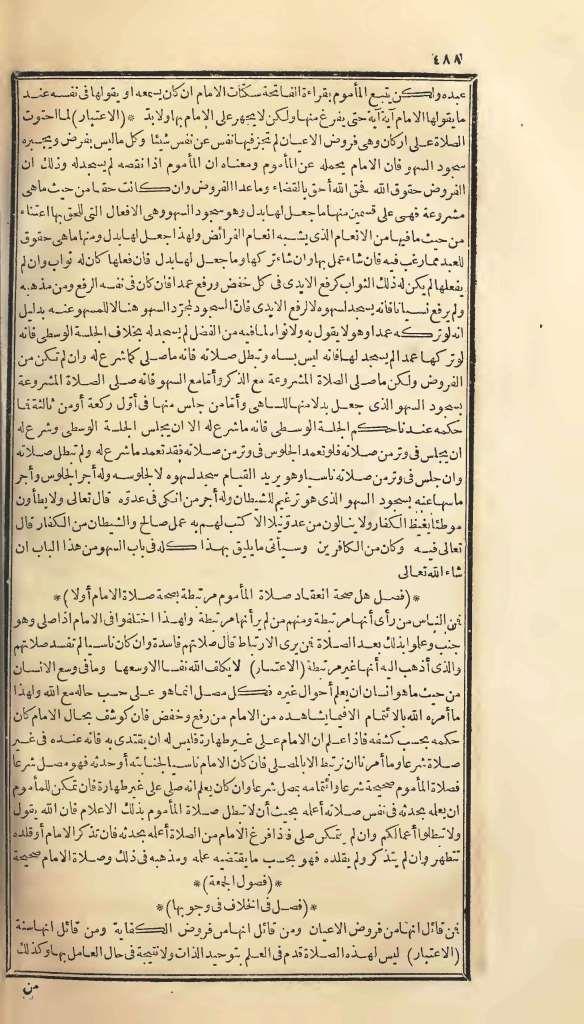 ٤٨٨
عبده ولكن يتبع المأموم بقراءة الفاتحة سكتات الامام ان كان يسمعه او يقولها فى نفسه عند
ما يقولها الامام آية آية حتى يفرغ منها ولكن لا يجهر على الامام بها ولا بد * (الاعتبار) لما احتوت
الصلاة على اركان وهى فروض الاعيان لم تجز فيها نفس عن نفس شيئا وكل ما ليس بفرض ويجبره
سجود السهو فان الامام يحمله عن المأموم ومعناه ان المأموم اذا نقصه لم يسجد له وذلك ان
الفروض حقوق الله فحق الله أحق بالقضاء وما عدا الفروض وان كانت حقا من حيث ما هى
مشروعة فهى على قسمين منها ما جعل لها بدل وهو سجود السهو وهى الافعال التى للحق بها اعتناء
من حيث ما فيها من الانعام الذى يشبه انعام الفرائض ولهذا جعل لها بدل ومنها ما هى حقوق
للعبد مما رغب فيه فان شاء عمل بها وان شاء تركها وما جعل لها بدل فان فعلها كان له ثواب وان لم
يفعلها لم يكن له ذلك الثواب كرفع الايدى فى كل خفض ورفع عمدا فان كان فى نفسه الرفع ومن مذهبه
ولم يرفع نسيانا فانه يسجد لسهوه لا لرفع الايدى فان السجود لمجرد السهو هنا لا للمسهو عنه بدليل
انه لو تركه عمدا وهو لا يقول به ولا نواه لما فيه من الفضل لم يسجد له بخلاف الجلسة الوسطى فانه
لو تركها عمدا لم يسجد لها فانه ليس بساه وتبطل صلاته فانه ما صلى كما شرع له وان لم تكن من
الفروض ولكن ما صلى الصلاة المشروعة مع الذكر وأما مع السهو فانه صلى الصلاة المشروعة
بسجود السهو الذى جعل بدلا منها للساهى وأما من جلس منها فى أول ركعة أو من ثالثة فما
حكمه عندنا حكم الجلسة الوسطى فانه ما شرع له الا ان يجلس الجلسة الوسطى وشرع له
ان يجلس فى وتر من صلاته فلو تعمد الجلوس فى وتر من صلاته فقد تعمد ما شرع له ولم تبطل صلاته
وان جلس فى وتر من صلاته ناسيا وهو يريد القيام سجد لسهوه لا لجلوسه وله أجر الجلوس وأجر
ما سها عنه بسجود السهو الذى هو ترغيم للشيطان وله أجر من انكى فى عدوه قال تعالى ولا يطأون
موطئا يغيظ الكفار ولا ينالون من عدو نيلا الا كتب لهم به عمل صالح والشيطان من الكفار قال
تعالى فيه وكان من الكافرين وسيأتى ما يليق بهذا كله فى باب السهو من هذا الباب ان
شاء الله تعالى
* (فصل هل صحة انعقاد صلاة المأموم مرتبطة بصحة صلاة الامام أولا) *
فمن الناس من رأى أنها مرتبطة ومنهم من لم ير أنها مرتبطة ولهذا اختلفوا فى الامام اذا صلى وهو
جنب وعلموا بذلك بعد الصلاة فمن يرى الارتباط قال صلاتهم فاسدة وان كان ناسيا لم تفسد صلاتهم
والذى أذهب اليه أنها غير مرتبطة (الاعتبار) لا يكلف الله نفسا الا وسعها وما فى وسع الانسان
من حيث ما هو انسان ان يعلم أحوال غيره فكل مصل انما هو على حسب حاله مع الله ولهذا
ما أمره الله بالائتمام الا فيما يشاهده من الامام من رفع وخفض فان كوشف بحال الامام كان
حكمه بحسب كشفه فاذا علم ان الامام على غير طهارة فليس له ان يقتدى به فانه عنده فى غير
صلاة شرعا وما أمرنا ان نرتبط الا بالمصلى فان كان الامام ناسيا لجنابته أو حدثه فهو مصل شرعا
فصلاة المأموم صحيحة شرعا وائتمامه بمصل شرعا وان كان يعلم انه صلى على غير طهارة فان تمكن للمأموم
ان يعلمه بحدثه فى نفس صلاته أعلمه بحيث أن لا تبطل صلاة المأموم بذلك الاعلام فان الله يقول
ولا تبطلوا أعمالكم وان لم يتمكن صلى فاذا فرغ الامام من الصلاة أعلمه بحدثه فان تذكر الامام أو قلده
تتطهر وان لم يتذكر ولم يقلده فهو بحسب ما يقتضيه علمه ومذهبه فى ذلك وصلاة الامام صحيحة
* (فصول الجمعة) *
* (فصل فى الخلاف فى وجوبها) *
فمن قائل انها من فروض الاعيان ومن قائل انها من فروض الكفاية ومن قائل انها سنة
(الاعتبار) ليس لهذه الصلاة قدم فى العلم بتوحيد الذات ولا نتيجة فى حال العامل بها وكذلك
من